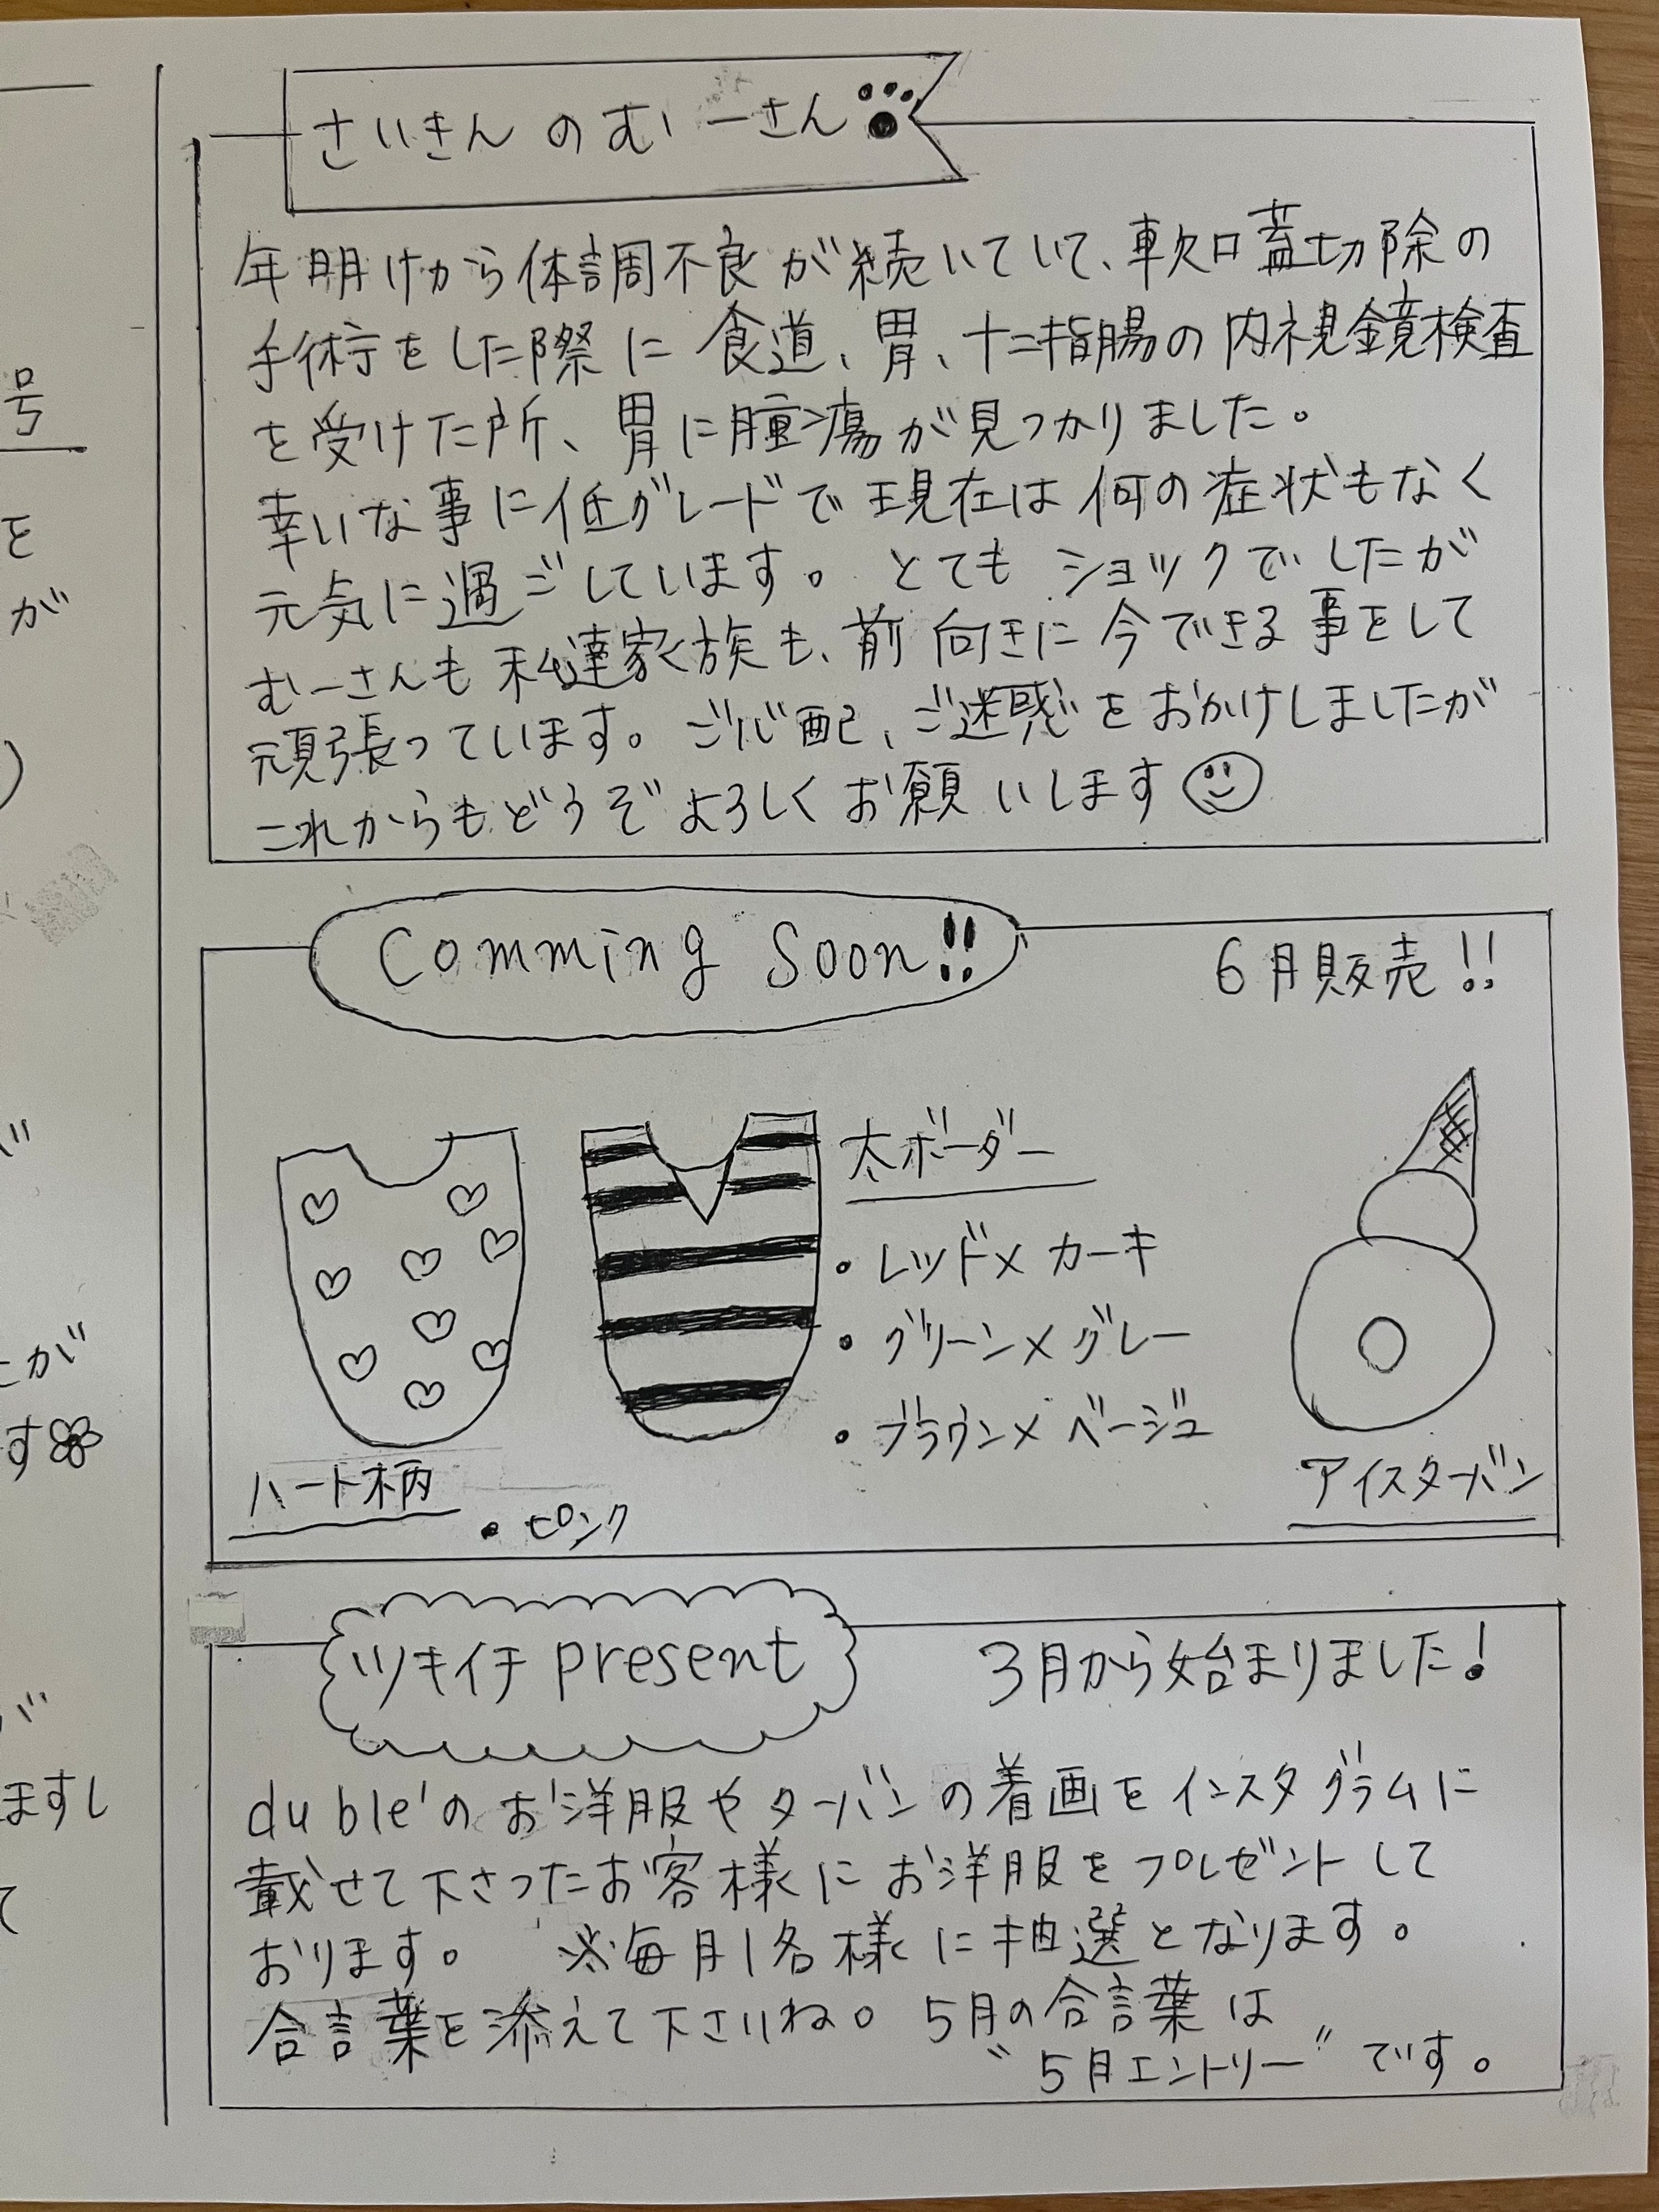 号
を
が
)
が
す
ますし
て
さいきんのむぃーさん
年明けから体調不良が続いていて、軟口蓋切除の
手術をした際に食道、胃、十二指腸の内視鏡検査
を受けた所、胃に腫瘍が見つかりました。
幸いな事に低グレードで現在は何の症状もなく
元気に過ごしています。とてもショックでしたが
むーさんも私達家族も、前向きに今できる事をして
頑張っています。ご心配、ご迷惑をおかけしましたが
これからもどうぞよろしくお願いします
Comming Soon!!
6月販売!!
太ボーダー
・レッド×カーキ
・グリーン×グレー
・ブラウン×ベージュ
ハート柄
・ピンク
アイスターバン
ツキイチpresent
3月から始まりました!
duble'のお洋服やターバンの着画をインスタグラムに
載せて下さったお客様にお洋服をプレゼントして
おります。 ※毎月1名様に抽選となります。
合言葉を添えて下さいね。5月の合言葉は
"5月エントリー"です。